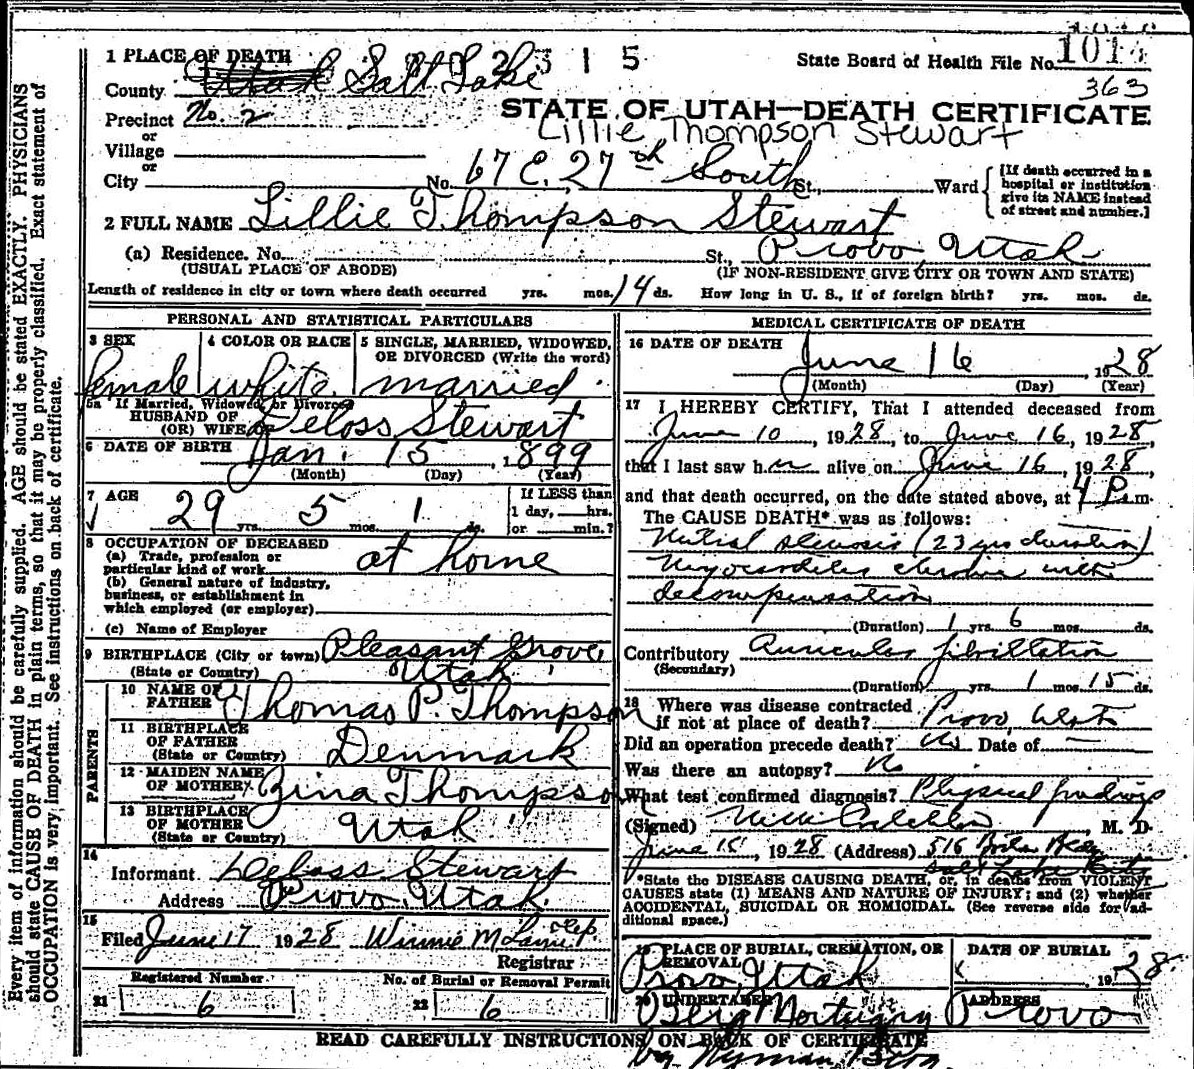 1 PLACE OF DEATH
2 3 1 5
State Board of Health File No. 1014
363
County Utah Salt Lake
STATE OF UTAH—DEATH CERTIFICATE
Precinct No. 2
Lillie Thompson Stewart
or
Village
or
City No. 67 E. 27th South St., Ward
[If death occurred in a hospital or institution give its NAME instead of street and number.]
2 FULL NAME Lillie Thompson Stewart
(a) Residence. No. St., Provo, Utah
(USUAL PLACE OF ABODE) (IF NON-RESIDENT GIVE CITY OR TOWN AND STATE)
Length of residence in city or town where death occurred yrs. mos. 14 ds. How long in U. S., if of foreign birth? yrs. mos. ds.
PERSONAL AND STATISTICAL PARTICULARS
3 SEX
female
4 COLOR OR RACE
white
5 SINGLE, MARRIED, WIDOWED, OR DIVORCED (Write the word)
married
5a If Married, Widowed, or Divorced
HUSBAND OF
(OR) WIFE OF Deloss Stewart
6 DATE OF BIRTH Jan. 15, 1899
(Month) (Day) (Year)
7 AGE
29 yrs. 5 mos. 1 ds.
If LESS than
1 day, hrs.
or min.?
8 OCCUPATION OF DECEASED
(a) Trade, profession or particular kind of work at home
(b) General nature of industry, business, or establishment in which employed (or employer)
(c) Name of Employer
9 BIRTHPLACE (City or town) Pleasant Grove,
(State or Country) Utah
PARENTS
10 NAME OF FATHER Thomas P. Thompson
11 BIRTHPLACE OF FATHER
(State or Country) Denmark
12 MAIDEN NAME OF MOTHER Zina Thompson
13 BIRTHPLACE OF MOTHER
(State or Country) Utah
14
Informant Deloss Stewart
Address Provo, Utah
15
Filed June 17 1928 Winnie M Dep
Registrar
Registered Number
21 6
No. of Burial or Removal Permit
22 6
MEDICAL CERTIFICATE OF DEATH
16 DATE OF DEATH
June 16, 1928
(Month) (Day) (Year)
17 I HEREBY CERTIFY, That I attended deceased from
June 10, 1928, to June 16, 1928,
that I last saw her alive on June 16, 1928,
and that death occurred, on the date stated above, at 4 P.m.
The CAUSE DEATH* was as follows:
Mitral stenosis (23 yrs duration)
Myocarditis chronic with
decompensation
(Duration) 1 yrs. 6 mos. ds.
Contributory Auricular fibrillation
(Secondary)
(Duration) yrs. 1 mos. 15 ds.
18 Where was disease contracted
if not at place of death? Provo, Utah
Did an operation precede death? No Date of —
Was there an autopsy? No
What test confirmed diagnosis? Physical findings
(Signed) M. D.
June 1928 (Address) 516 Bldg
Salt Lake City
*State the DISEASE CAUSING DEATH, or, in deaths from VIOLENT
CAUSES state (1) MEANS AND NATURE OF INJURY; and (2) whether
ACCIDENTAL, SUICIDAL OR HOMICIDAL. (See reverse side for additional space.)
19 PLACE OF BURIAL, CREMATION, OR REMOVAL
Provo, Utah
DATE OF BURIAL
1928
20 UNDERTAKER
Berg Mortuary
by Wyman Berg
ADDRESS
Provo
READ CAREFULLY INSTRUCTIONS ON BACK OF CERTIFICATE
Every item of information should be carefully supplied. AGE should be stated EXACTLY. PHYSICIANS
should state CAUSE OF DEATH in plain terms, so that it may be properly classified. Exact statement of
OCCUPATION is very important. See instructions on back of certificate.